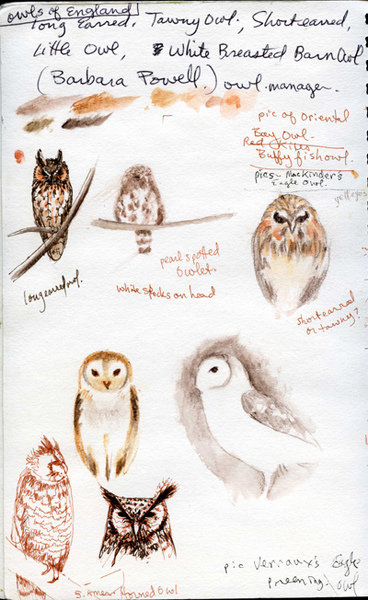 owls of England
Long Earred, Tawny Owl, Shortearred,
Little Owl, White Breasted Barn Owl
(Barbara Powell.) owl manager.
pic of Oriental
Bay Owl.
Red Kites
Buffy fish owl.
pics- Mackinder's
Eagle Owl.
pearl spotted
Owlet
white specks on head
longearedowl.
shortearred
or tawny?
pic Verraux's Eagle
preening! owl
S. Amear Horned Owl